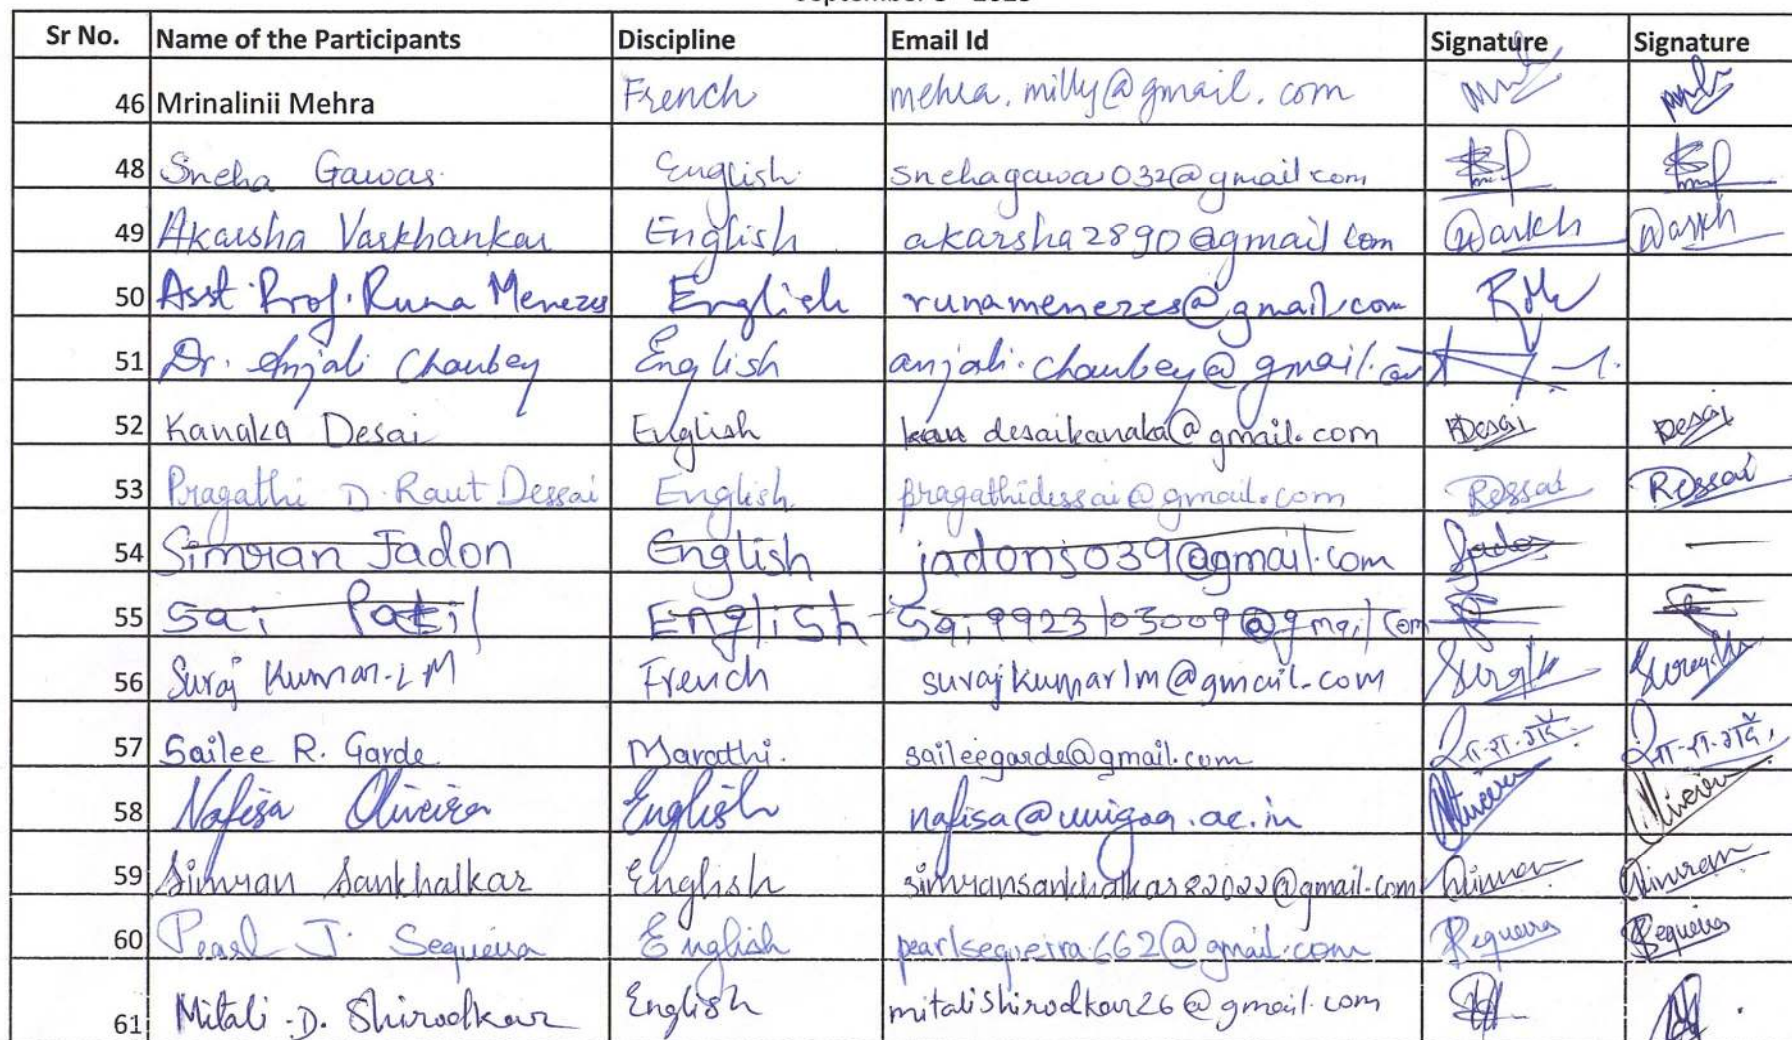 Sr No. Name of the Participants Discipline Email Id Signature Signature
46 Mrinalinii Mehra French mehra.milly@gmail.com
48 Sneha Gawas English snehagawas032@gmail.com
49 Akarsha Varkhankar English akarsha2890@gmail.com
50 Asst. Prof. Runa Menezes English runamenezes@gmail.com
51 Dr. Anjali Chaubey English anjali.chaubey@gmail.com
52 Kanaka Desai English desaikanaka@gmail.com Desai Desai
53 Pragathi D. Raut Dessai English pragathidessai@gmail.com
54 Simran Jadon English jadons039@gmail.com
55 Sai Patil English Sai9923103009@gmail.com
56 Suraj Kumar.L M French surajkumarlm@gmail.com
57 Sailee R. Garde Marathi. saileegarde@gmail.com
58 Nafisa Oliveira English nafisa@unigoa.ac.in
59 Simran Sankhalkar English simransankhalkar82022@gmail.com Simran Simran
60 Pearl J. Sequeira English pearlsequeira662@gmail.com Sequeira Sequeira
61 Mitali .D. Shirodkar English mitalishirodkar26@gmail.com